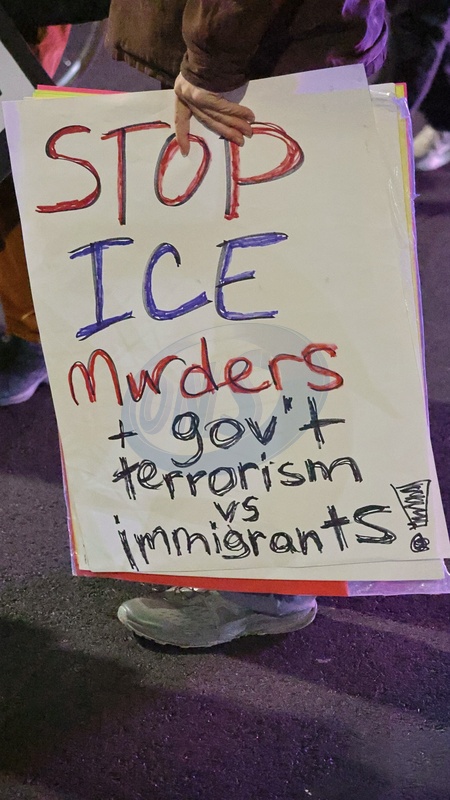 STOP
ICE
Murders
+ gov't
terrorism
vs
immigrants!